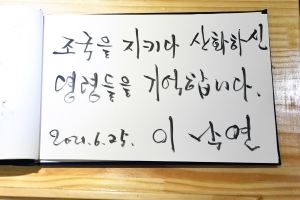 조국을 지키다 산화하신
영령들을 기억합니다.
2021.6.25. 이 낙연